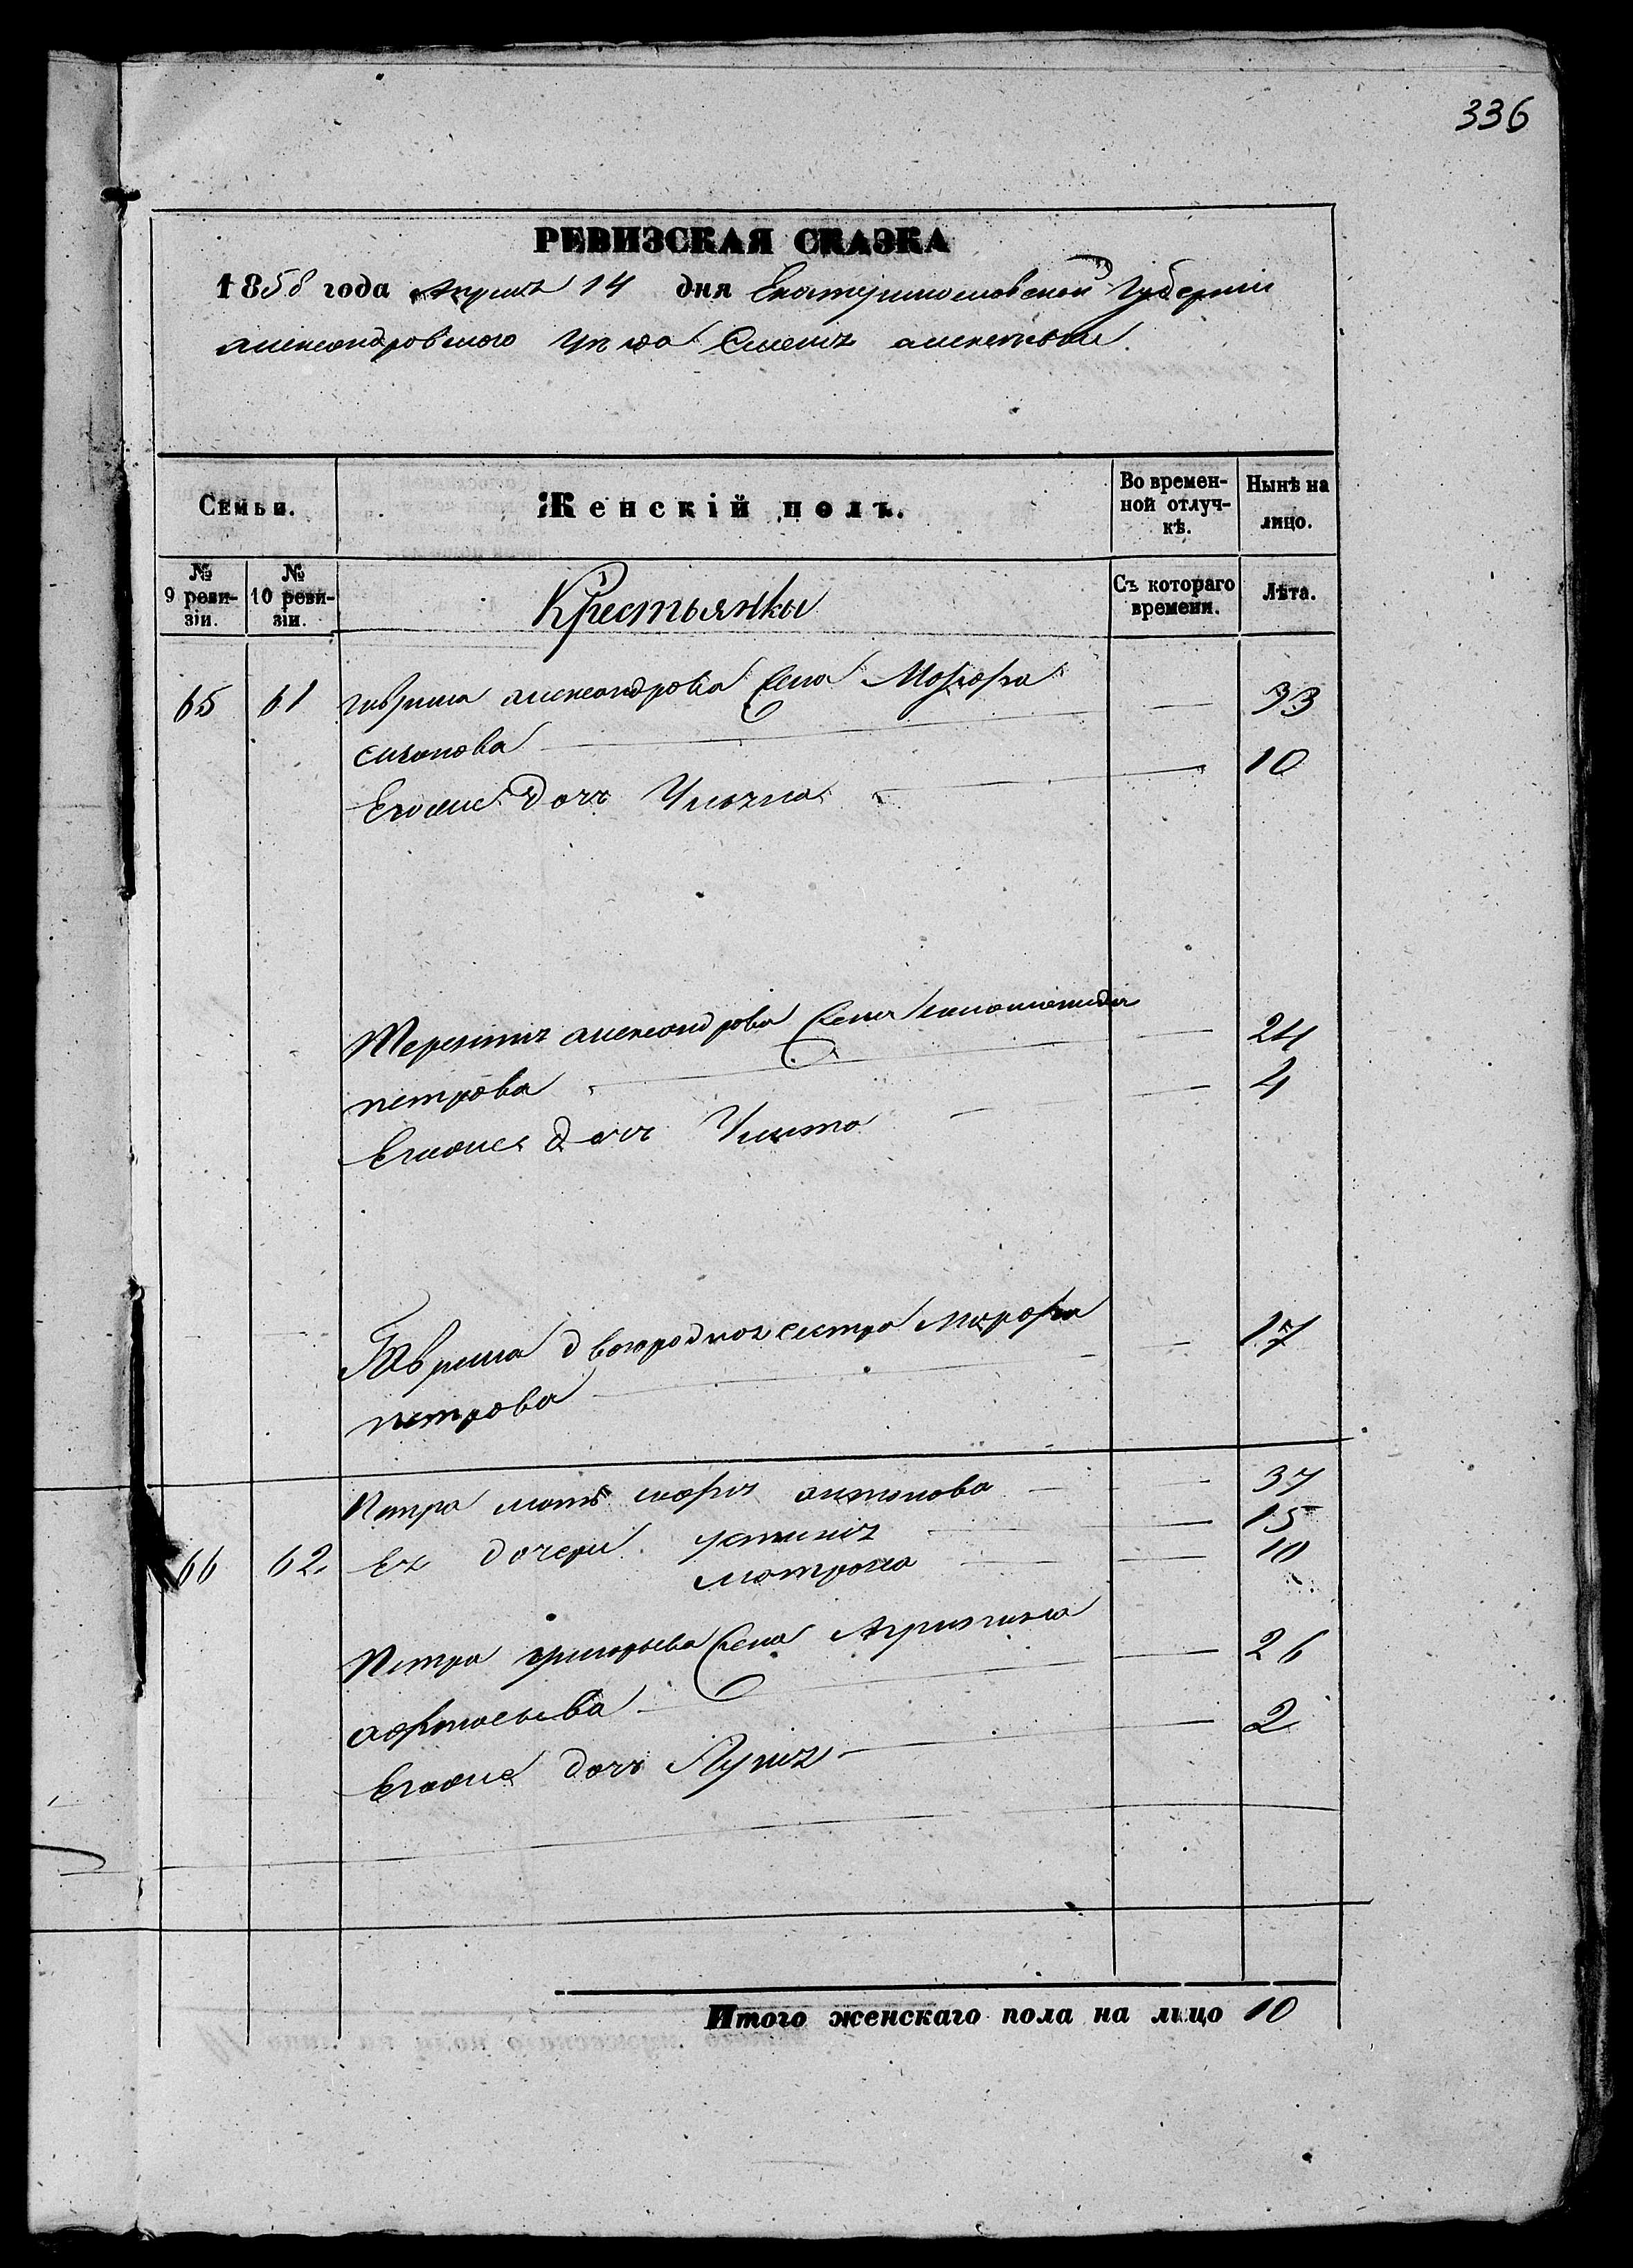 336
РЕВИЗСКАЯ СКАЗКА
1858 года Апреля 14 дня Екатеринославской Губернии
александровского Уезда Селения алексеевки
Семьи.
Женскій полъ.
Во времен-
ной отлуч-
кѣ.
Нынѣ на
лицо.
№
9 реви-
зіи.
№
10 реви-
зіи.
Крестьянки
Съ котораго
времени.
Лѣта.
65 61 гаврила александрова Жена Марфа 33
10
Его же дочь Ульяна
Терентия александрова Жена 24
петрова 4
Его же дочь Улита
Гаврила двоюродная сестра Марфа 17
петрова
Петра мать марфа антонова 37
66 62 Ея дочери устиния 15
матрона 10
Петра григорьева Жена Агрипина 26
2
Его же дочь Лукия
Итого женскаго пола на лицо 10